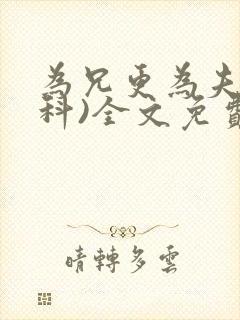 為兄更為夫
科)全文免費
晴轉多雲